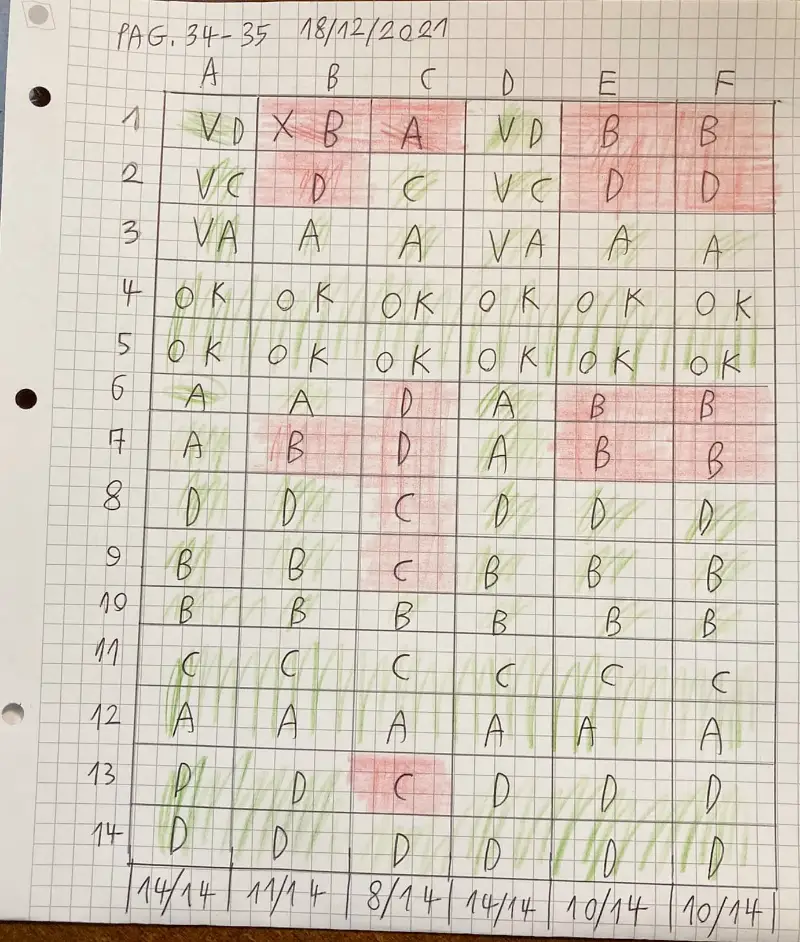 PAG. 34-35 18/12/2021
A B C D E F
1 VD X B A VD B B
2 VC D C VC D D
3 VA A A VA A A
4 OK OK OK OK OK OK
5 OK OK OK OK OK OK
6 A A D A B B
7 A B D A B B
8 D D C D D D
9 B B C B B B
10 B B B B B B
11 C C C C C C
12 A A A A A A
13 D D C D D D
14 D D D D D D
14/14 11/14 8/14 14/14 10/14 10/14